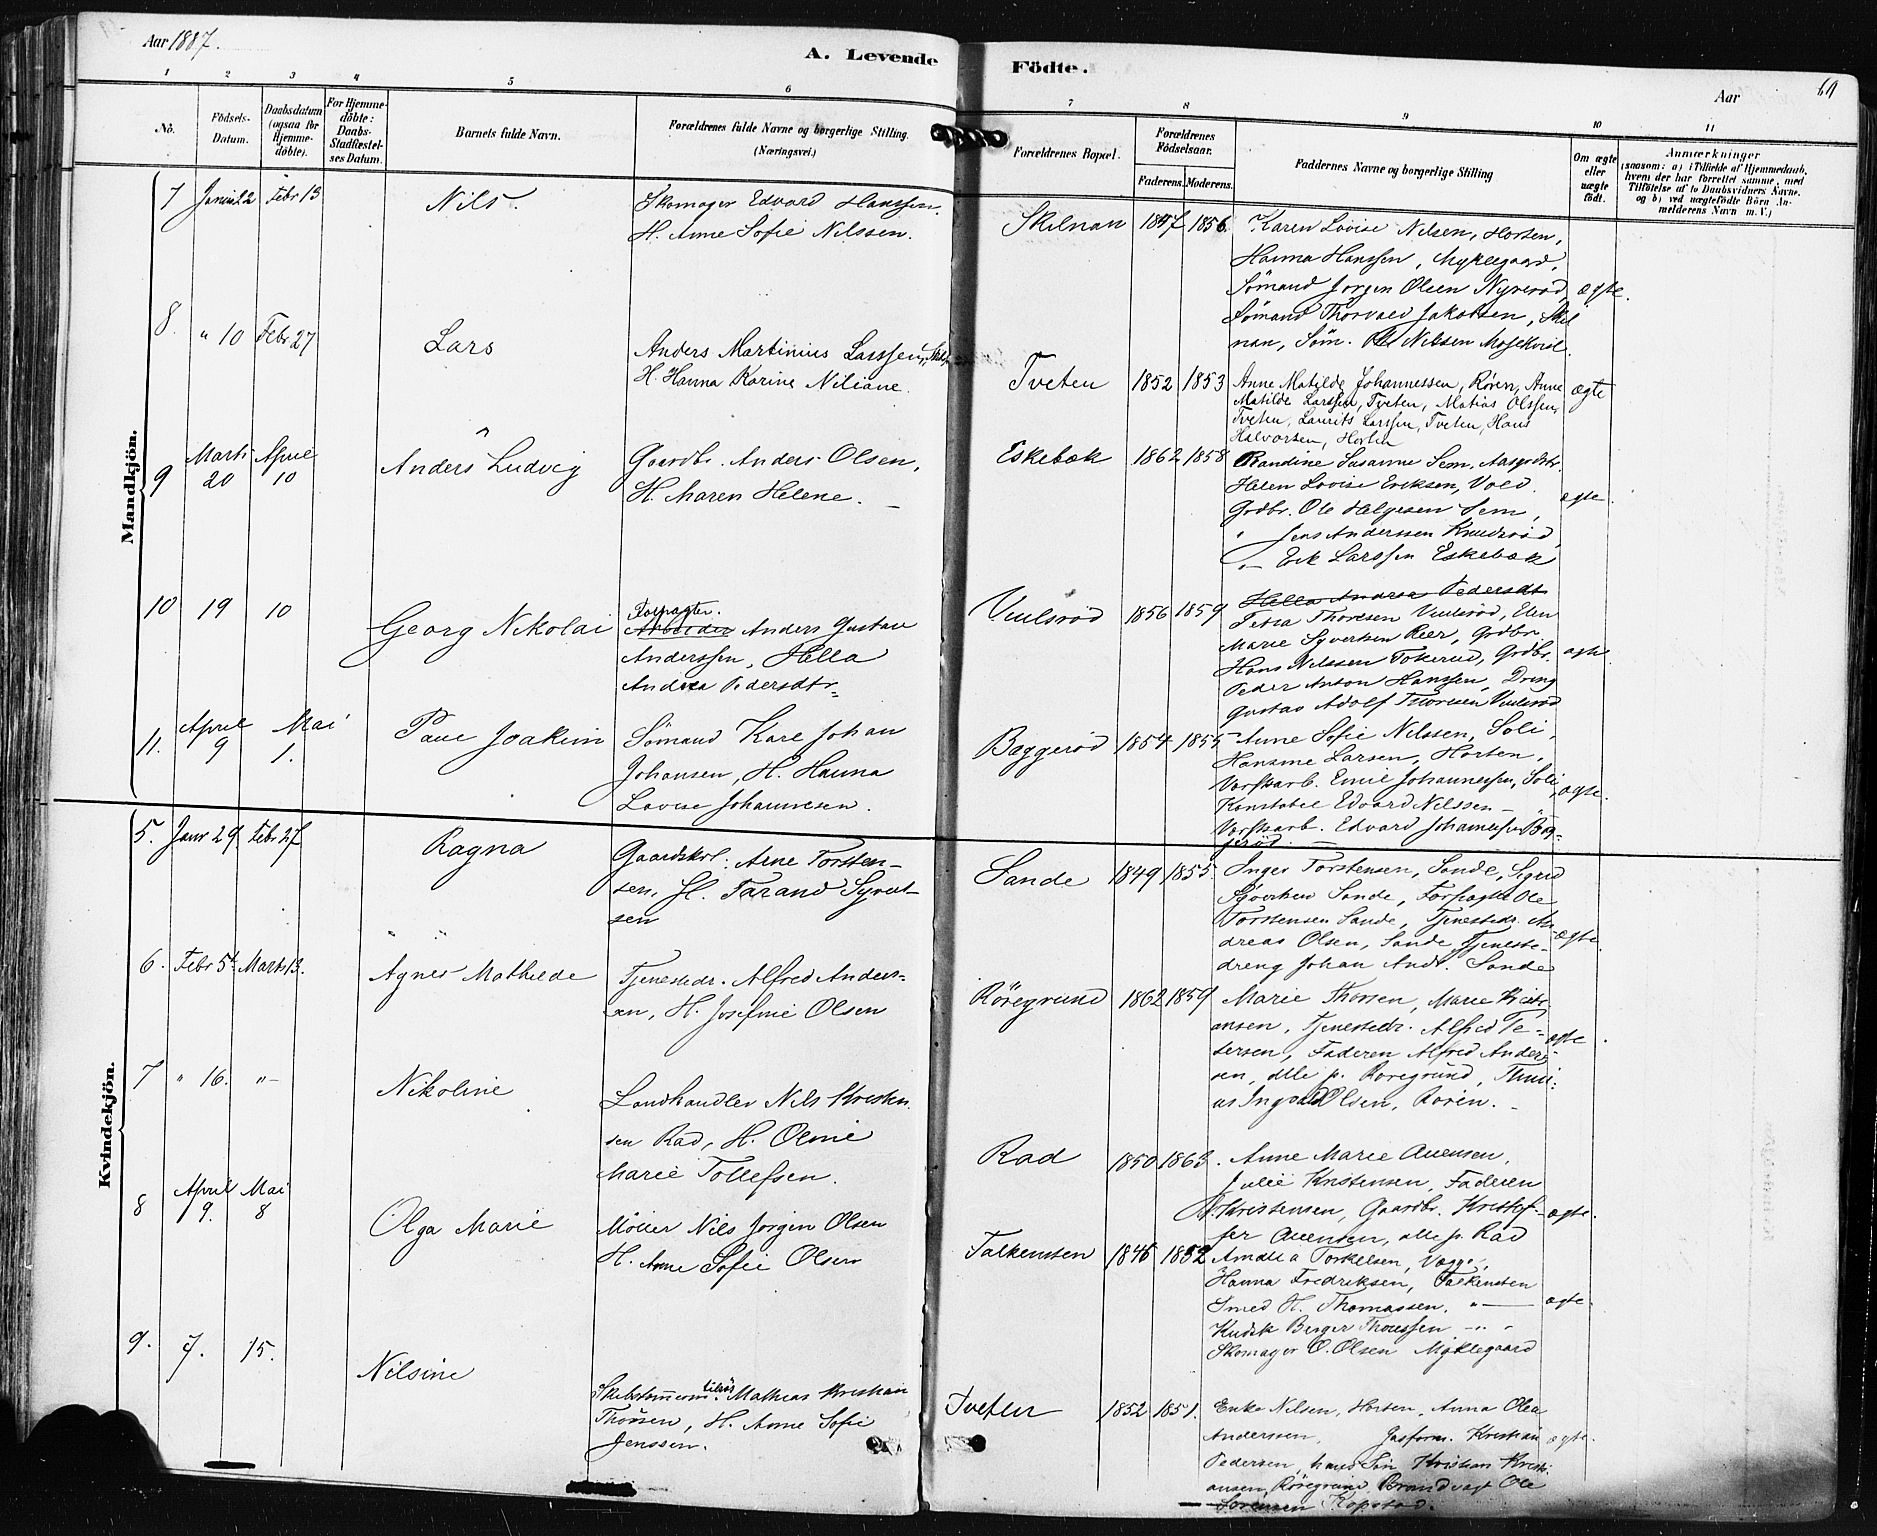 Aar 1887.
A. Levende Födte.
Aar
1 2 3 4 5 6 7 8 9 10 11
No.
Födsels-Datum.
Daabsdatum (ogsaa for Hjemmedöbte).
For Hjemmedöbte: Daabs-Stadfæstelses Datum.
Barnets fulde Navn.
Forældrenes fulde Navne og borgerlige Stilling.
(Næringsvei.)
Forældrenes Bopæl.
Forældrenes Födselsaar.
Faderens. Moderens.
Faddernes Navne og borgerlige Stilling
Om ægte eller uægte födt.
Anmærkninger
(saasom: a) i Tilfælde af Hjemmedaab, hvem der har forrettet samme, med Tilföielse af to Daabsvidners Navne, og b) ved uægtefödte Börn Anmelderens Navn m. V.)
Mandkjön.
7 Januar 12 Febr 13
Nils.
Skomager Edvard Hanssen.
H. Anne Sofie Nilssen.
Skilnan 1847 1856.
Karen Lovise Nilsen, Horten,
Hanna Hanssen, Myklegaard,
Sømand Jørgen Olsen Nyrerød,
Sømand Thorvald Jakobsen, Skil
nan, Søm. Ole Nilsen Mosekvil.
ægte.
8. " 10 Febr 27
Lars
Anders Martinius Larssen,
H. Hanna Karine Niliane.
Tveten 1852 1853
Anne Matilde Johannessen, Røren, Anne
Matilde Larssen, Tveten, Matias Olssen,
Tveten, Laurits Larssen, Tveten, Hans
Halvorsen, Horten
ægte
9 Marts 20 April 10
Anders Ludvig
Gaardbr. Anders Olsen,
H. Maren Helene.
Eskebæk 1862 1858
Randine Susanne Sem,
Helen Lovise Eriksen, Vold.
Grdbr. Ole Helgesen Sem,
" Jens Anderssen Knudsrød,
" — Erik Larssen Eskebæk
ægte.
10 19 10
Georg Nikolai
Forpagter.
Arbeider Anders Gustav
Anderssen, Hella
Andrea Pedersdtr.
Viulsrød 1856 1859
Hella Andrea Pedersdt
Petra Thoresen Viulsrød, Elen
Marie Syvertsen Reer, Grdbr.
Hans Nilssen Tokerud, Grdbr.
Peder Anton Hanssen, Dreng
Gustav Adolf Thoresen Viulsrød
ægte.
11. April 9 Mai 1.
Paul Joakim
Sømand Karl Johan
Johansen, H. Hanna
Lovise Johannesen.
Baggerød 1854 1855
Anne Sofie Nilssen, Soli,
Hansine Larsen, Horten,
Værftsarb. Emil Johannessen, Soli,
Konstabel Edvard Nilssen —
Værftsarb. Edvard Johannessen Bag-
gerød. —
ægte.
Kvindekjön.
5. Janr 29 Febr 27
Ragna
Gaardskol. Arne Torsten-
sen, H. Tarand Syvert
sen
Sande 1849 1855
Inger Torstensen, Sande, Sigrid
Syvertsen Sande, Forpagter Ole
Torstensen Sande, Tjenestedr. An
dreas Olsen, Sande, Tjeneste-
dreng Johan Andr. Sande
ægte.
6. Febr 5t Marts 13.
Agnes Mathilde
Tjenestedr. Alfred Anders-
en, H. Josefine Olsen
Röregrund 1862 1859
Marie Thorsen, Marie Kristi
ansen, Tjenestedr. Alfred Pe-
tersen, Faderen Alfred Anders
sen, alle p. Roregrund,
Olsen, Roren. —
ægte.
7 " 16. " —
Nikoline
Landhandler Nils Kristen
sen Rad, H. Oline
Marie Tollefsen.
Rad 1850 1863.
Anne Marie Auensen,
Julie Kristensen, Faderen
N. Kristensen, Gaardbr. Kristof-
fer Auensen, alle p. Rad
ægte.
8 April 9. Mai 8
Olga Marie
Möller Nils Jorgen Olsen
H. Anne Sofie Olsen
Falkensten 1846 1852
Amalia Torkelsen, Vegge.,
Hanna Fredriksen, Falkensten
Smed H. Thomassen, " —
Kudsk Berger Thorssen — " "
Skomager O. Olsen Myklegaard
ægte.
9. 7. 15.
Nilsine
Skibstömmerm. Mathias Kristian
Thorsen, H. Anne Sofie
Jenssen.
Tveten 1852 1851.
Enke Nilsen, Horten, Anna Olea
Anderssen, Kristian
Pedersen, hans Søn Kristian Kristi
ansen, Röregrund, Brandvagt Ole
Sorensen Kopstad.
ægte.